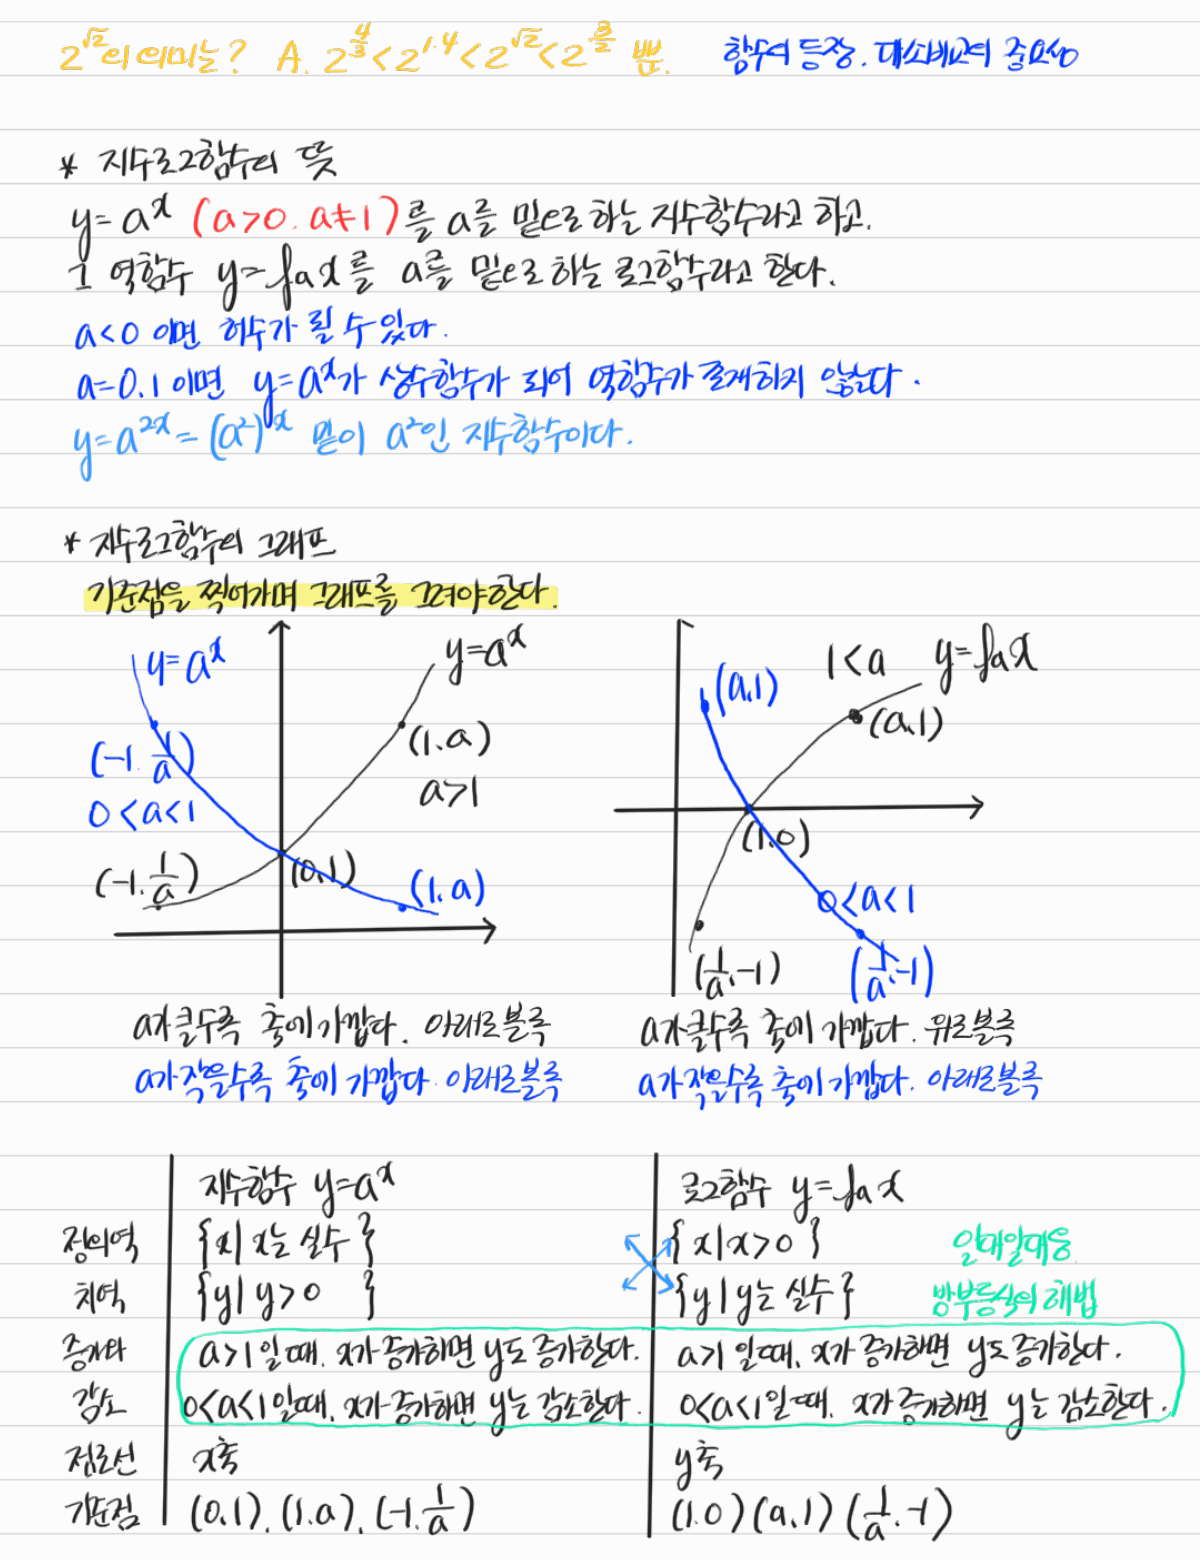 2^√2의 의미는? A. 2^(4/3) < 2^1.4 < 2^√2 < 2^(3/2) 뿐. 함수의 등장. 대소비교의 중요성
* 지수로그함수의 뜻
y=a^x (a>0. a≠1)를 a를 밑으로 하는 지수함수라고 하고.
그 역함수 y=log_a x를 a를 밑으로 하는 로그함수라고 한다.
a<0 이면 허수가 될 수 있다.
a=0.1 이면 y=a^x가 상수함수가 되어 역함수가 존재하지 않는다.
y=a^2x=(a²)^x 밑이 a²인 지수함수이다.
* 지수로그함수의 그래프
기준점을 찍어가며 그래프를 그려야한다.
y=a^x
(-1. 1/a)
0<a<1
(-1. 1/a)
y=a^x
(1.a)
a>1
(0.1)
(1.a)
(a.1)
1<a y=log_a x
(a.1)
(1.0)
0<a<1
(1/a.-1)
(1/a.-1)
a가 클수록 축에 가깝다. 아래로볼록
a가작을수록 축에 가깝다. 아래로볼록
a가클수록 축에 가깝다. 위로볼록
a가작을수록 축에 가깝다. 아래로볼록
지수함수 y=a^x 로그함수 y=log_a x
정의역 {x| x는 실수} {x|x>0} 일대일대응
치역 {y| y>0 } {y|y는 실수} 방부등식의 해법
증가와 a>1 일 때. x가 증가하면 y도 증가한다. a>1 일때. x가 증가하면 y도 증가한다.
감소 0<a<1 일때. x가 증가하면 y는 감소한다. 0<a<1일때. x가 증가하면 y는 감소한다.
점근선 x축 y축
기준점 (0.1). (1.a). (-1. 1/a) (1.0) (a.1) (1/a.-1)